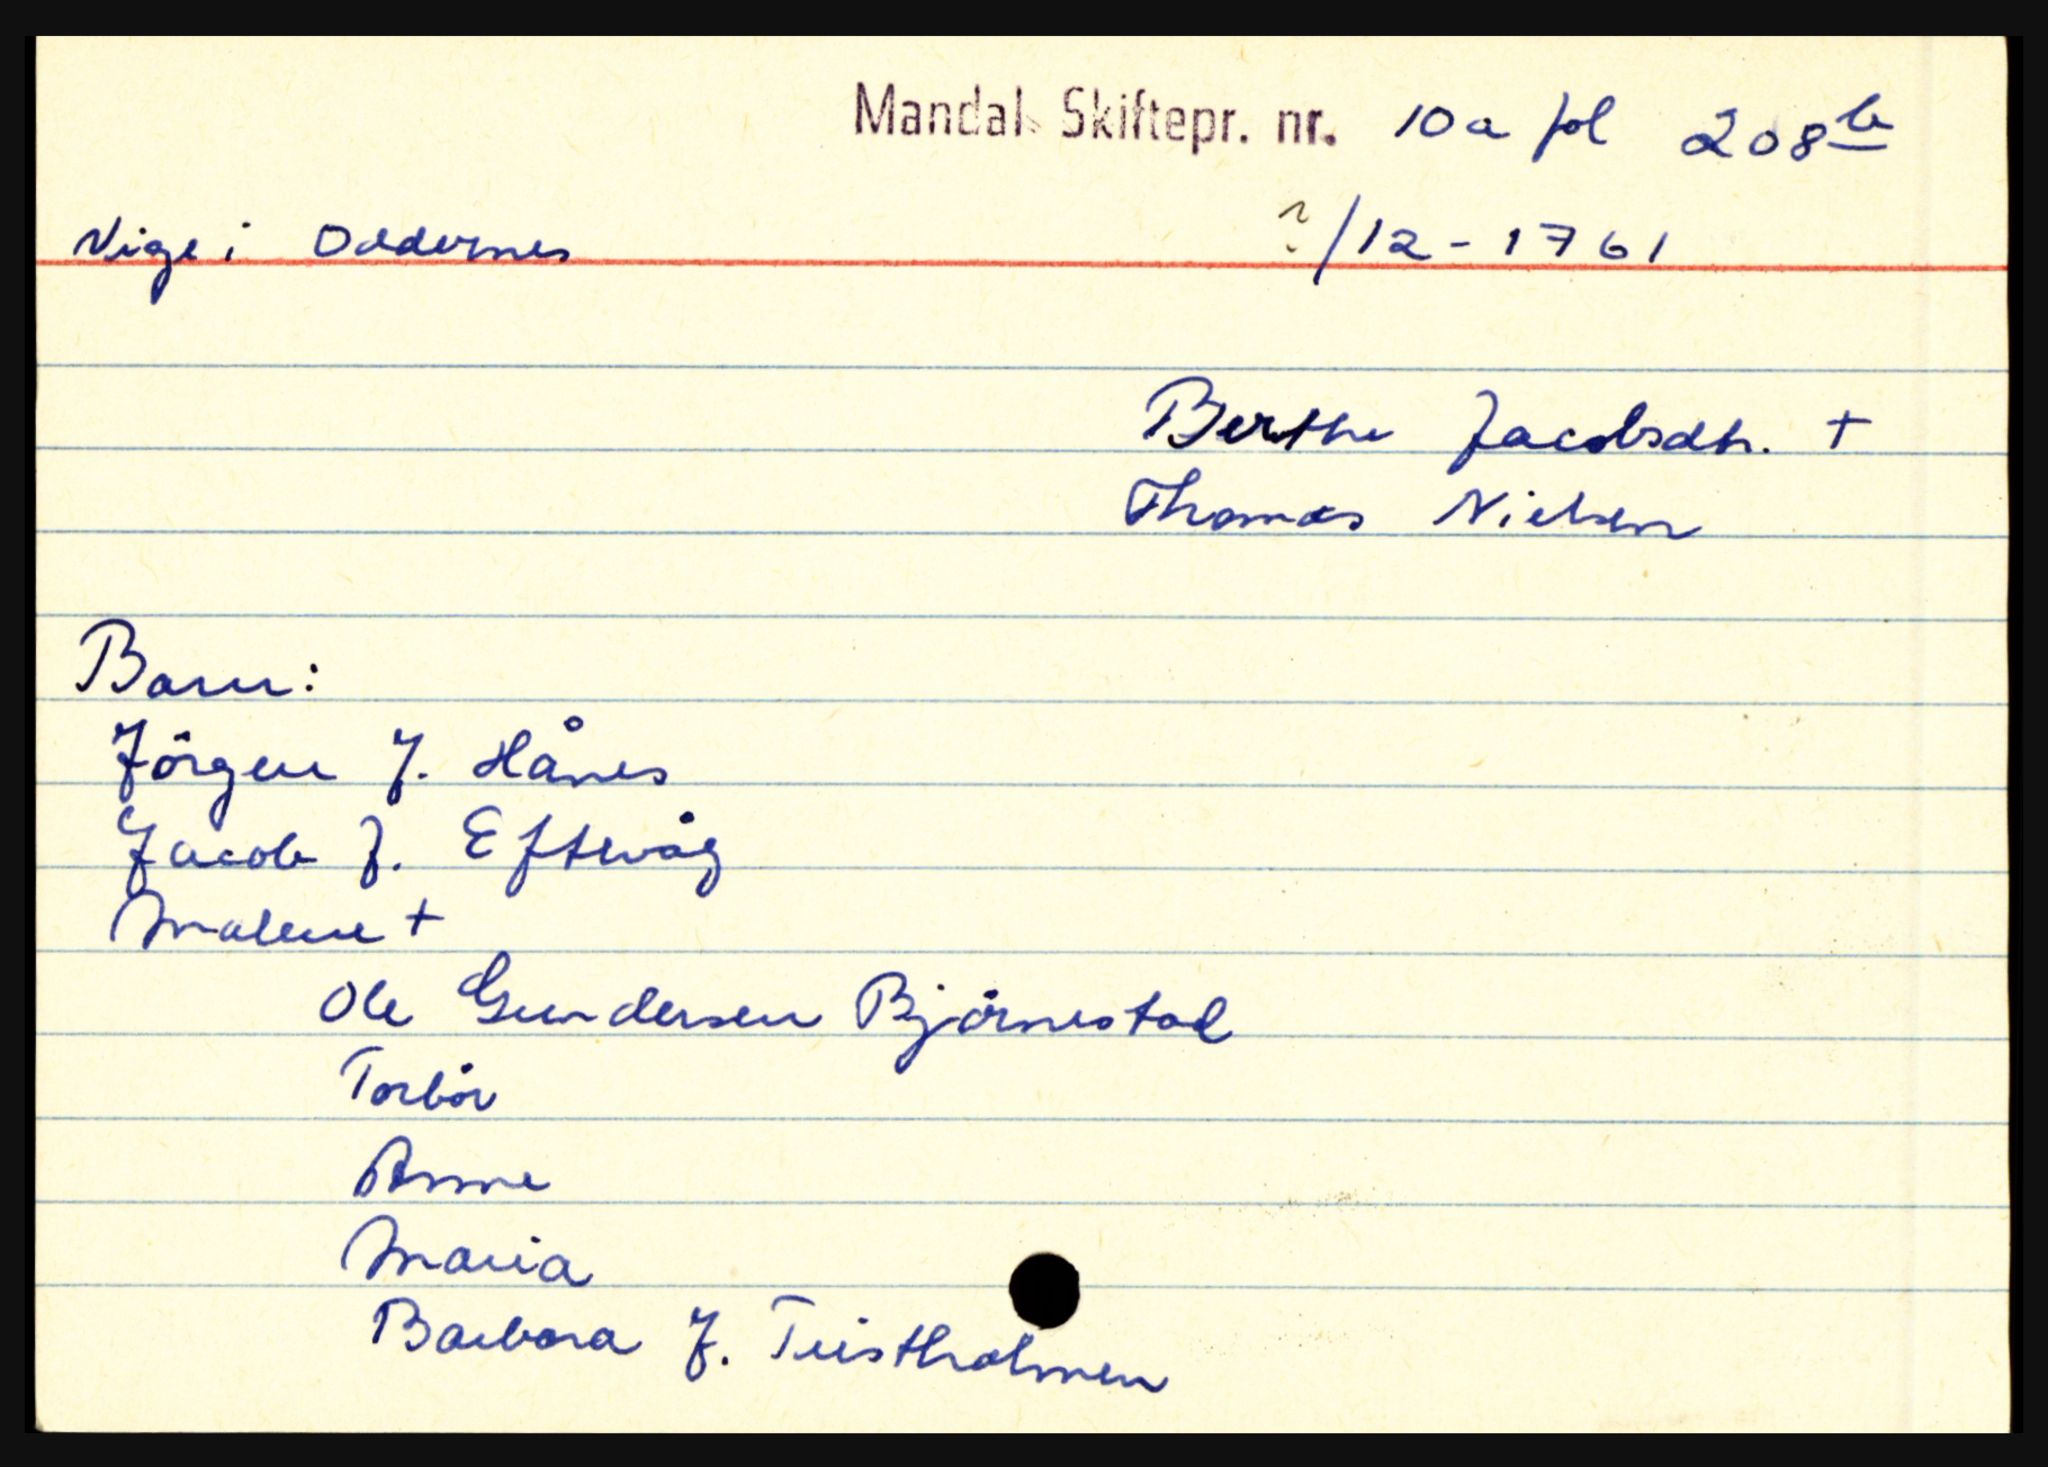 Mandal Skiftepr. nr. 10a fol 208b
Vige i Oddernes ?/12-1761
Berthe Jacobsdtr. +
Thomas Nielsen
Barn:
Jörgen J. Hånes
Jacob J. Eftevåg
Malene +
Ole Gundersen Björnestad
Torbör
Anne
Maria
Barbara J. Teistholmen